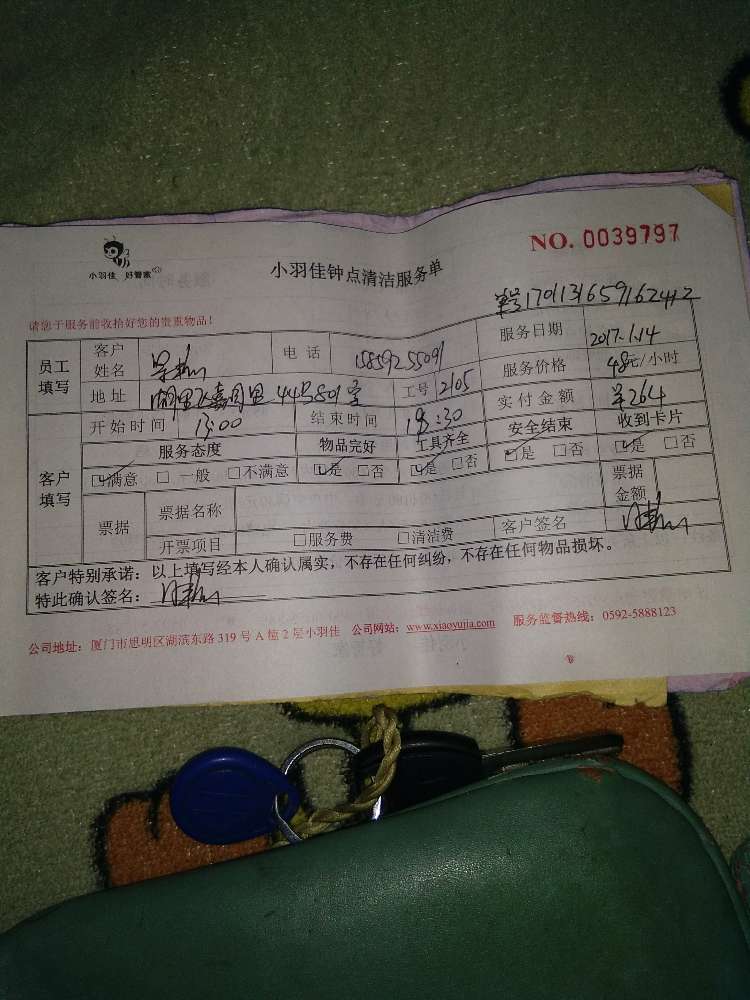 小羽佳 好管家
NO. 0039797
小羽佳钟点清洁服务单
单号170113165916242
请您于服务前收拾好您的贵重物品！
员工填写 客户姓名 电话 服务日期 2017.1.14
地址 44号801室 工号 2105 服务价格 48元/小时
开始时间 13:00 结束时间 18:30 实付金额 ¥264
客户填写 服务态度 物品完好 工具齐全 安全结束 收到卡片
☑满意 □一般 □不满意 ☑是 □否 ☑是 □否 ☑是 □否 ☑是 □否
票据 票据名称 票据金额
开票项目 □服务费 □清洁费 客户签名
客户特别承诺：以上填写经本人确认属实，不存在任何纠纷，不存在任何物品损坏。
特此确认签名：
公司地址：厦门市思明区湖滨东路 319 号 A 幢 2 层小羽佳 公司网站：www.xiaoyujia.com 服务监督热线：0592-5888123